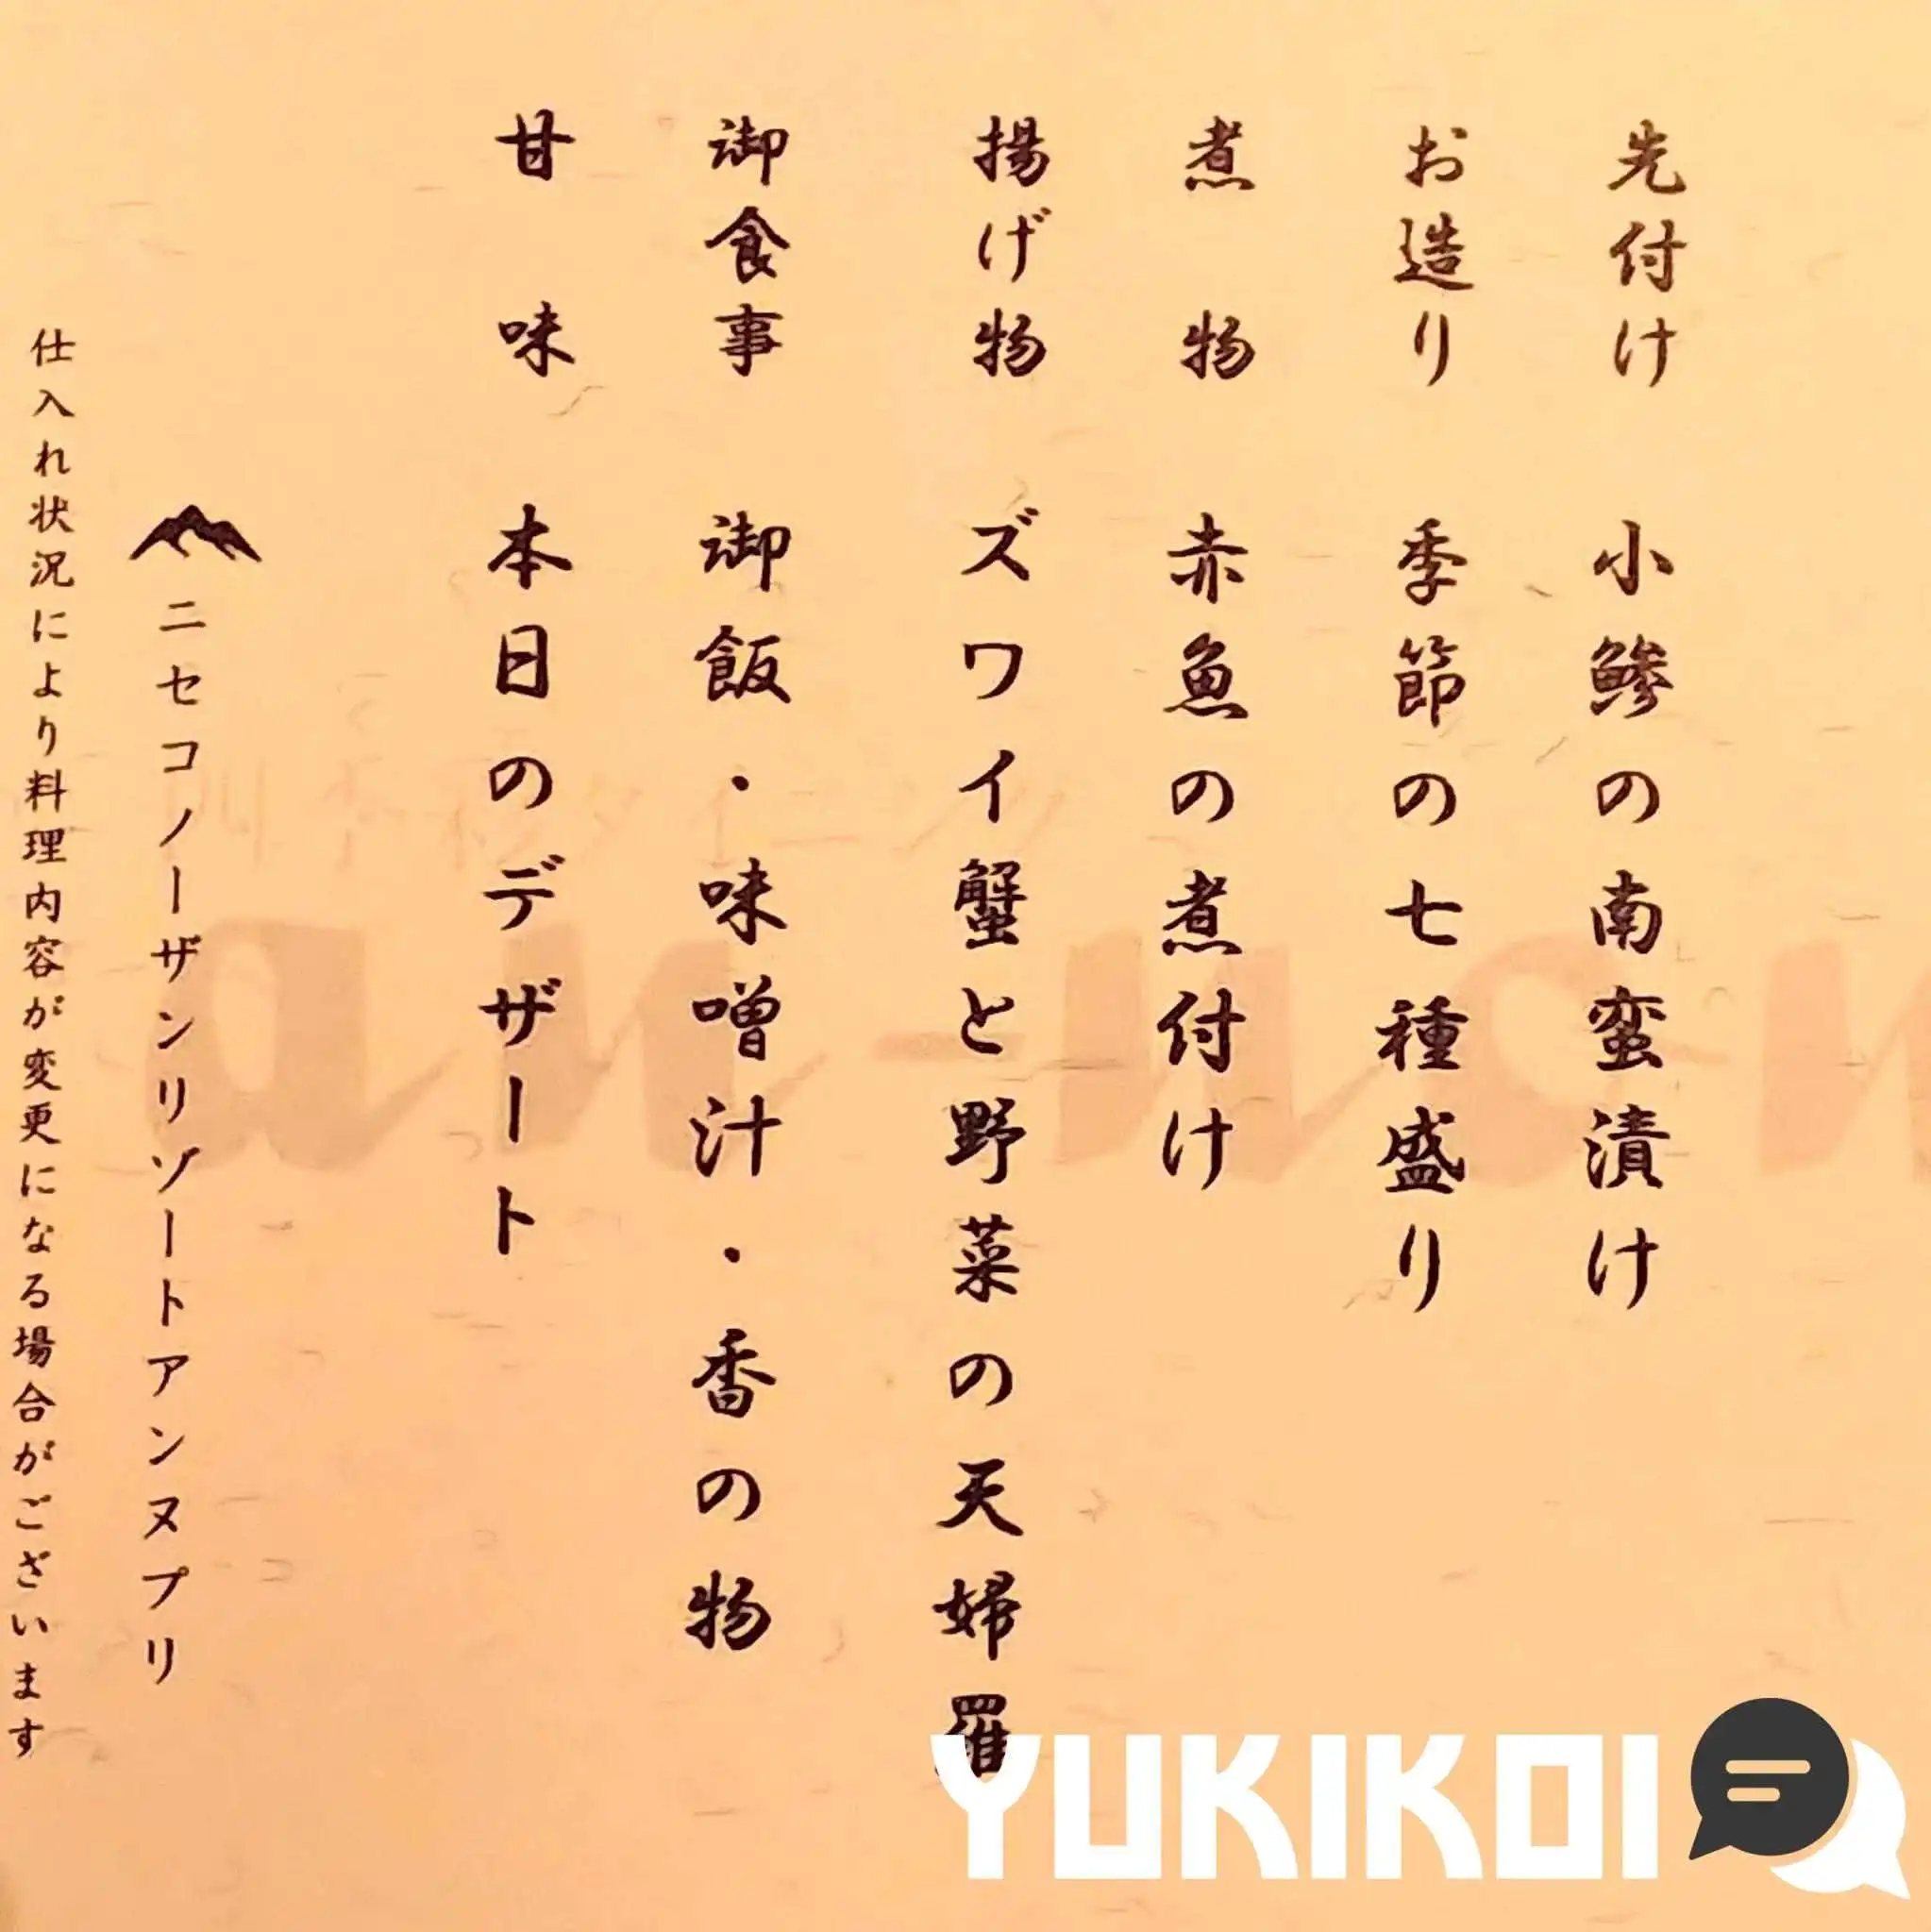 先付け 小鯵の南蛮漬け
お造り 季節の七種盛り
煮物 赤魚の煮付け
揚げ物 ズワイ蟹と野菜の天婦羅
御食事 御飯・味噌汁・香の物
甘味 本日のデザート
ニセコノーザンリゾートアンヌプリ
仕入れ状況により料理内容が変更になる場合がございます
YUKIKOI